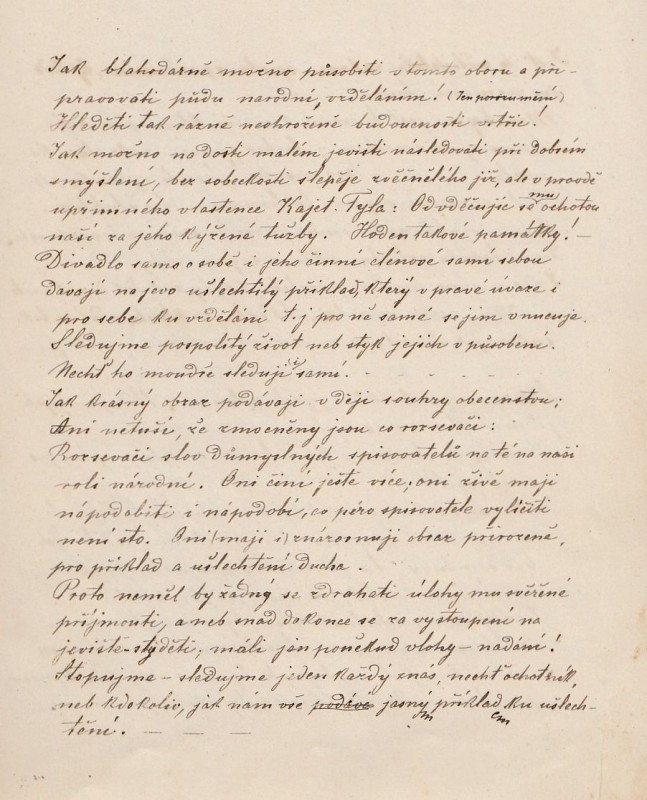 Jak blahodárně možno působiti v tomto oboru a při-
pravovati půdu národní, vzděláním! (Jen porozumění)
Hleděti tak rázně neohroženě budoucnosti vstříc!
Jak možno na dosti malém jevišti následovati při dobrém
smýšlení, bez sobeckosti šlépěje zvěčnělého již, ale v pravdě
upřímného vlastence Kajet. Tyla: Odvděčujíc se mu ochotou
naší za jeho kýžené tužby. Hoden takové památky! –
Divadlo samo o sobě i jeho činní členové sami sebou
dávají na jevo ušlechtilý příklad, který v pravé úvaze i
pro sebe ku vzdělání t. j pro ně samé se jim vnucuje.
Sledujme pospolitý život neb styk jejich v působení.
Nechť ho moudře sledují i sami. – – – – –
Jak krásný obraz podávají v ději souhry obecenstvu;
Ani netuší, že zmocněny jsou co rozsevači:
Rozsevači slov důmyslných spisovatelů na té na naší
roli národní. Oni činí ješte více; oni živě mají
nápodobiti i nápodobí, co péro spisovatele vylíčiti
není sto. Oni (mají i) znázorňují obraz přirozeně,
pro příklad a ušlechtění ducha.
Proto neměl by žádný se zdráhati úlohy mu svěřené
příjmouti, a neb snad dokonce se za vystoupení na
jeviště – styděti; máli jen poněkud vlohy – nadání!
Stopujme – sledujme jeden každý znás, nechť ochotník,
neb kdokoliv, jak nám vše podáva jasným příkladem ku ušlech-
tění. – – –